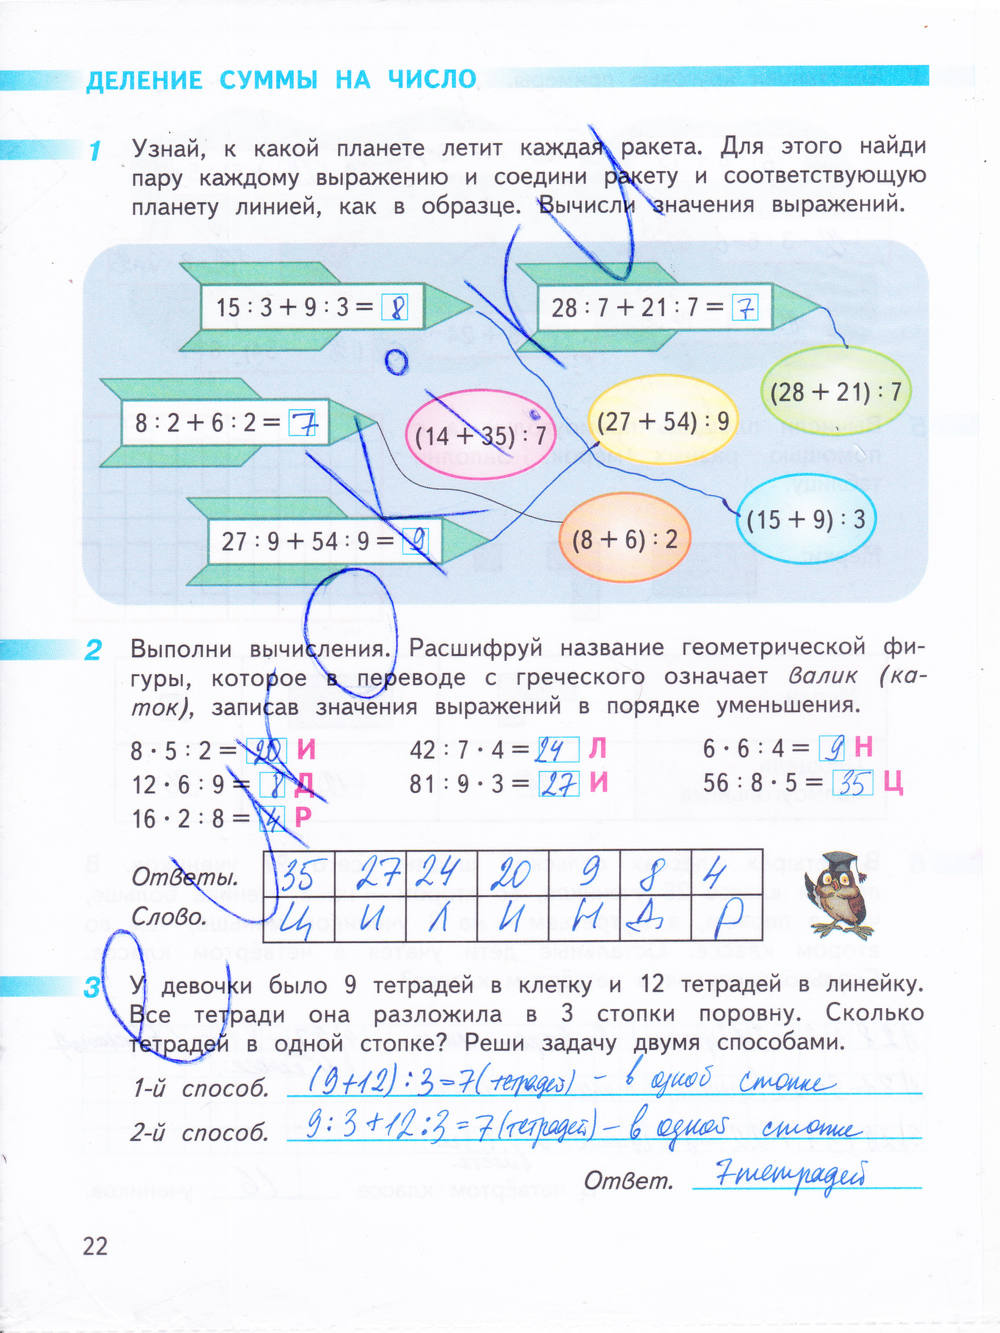 ДЕЛЕНИЕ СУММЫ НА ЧИСЛО
1 Узнай, к какой планете летит каждая ракета. Для этого найди
пару каждому выражению и соедини ракету и соответствующую
планету линией, как в образце. Вычисли значения выражений.
15 : 3 + 9 : 3 = 8
28 : 7 + 21 : 7 = 7
8 : 2 + 6 : 2 = 7
(14 + 35) : 7
(27 + 54) : 9
(28 + 21) : 7
27 : 9 + 54 : 9 = 9
(8 + 6) : 2
(15 + 9) : 3
2 Выполни вычисления. Расшифруй название геометрической фи-
гуры, которое в переводе с греческого означает валик (ка-
ток), записав значения выражений в порядке уменьшения.
8 · 5 : 2 = 20 И 42 : 7 · 4 = 24 Л 6 · 6 : 4 = 9 Н
12 · 6 : 9 = 8 Д 81 : 9 · 3 = 27 И 56 : 8 · 5 = 35 Ц
16 · 2 : 8 = 4 Р
Ответы. 35 27 24 20 9 8 4
Слово. Ц И Л И Н Д Р
3 У девочки было 9 тетрадей в клетку и 12 тетрадей в линейку.
Все тетради она разложила в 3 стопки поровну. Сколько
тетрадей в одной стопке? Реши задачу двумя способами.
1-й способ. (9+12) : 3 = 7 (тетрадей) – в одной стопке
2-й способ. 9 : 3 + 12 : 3 = 7 (тетрадей) – в одной стопке
Ответ. 7 тетрадей
22